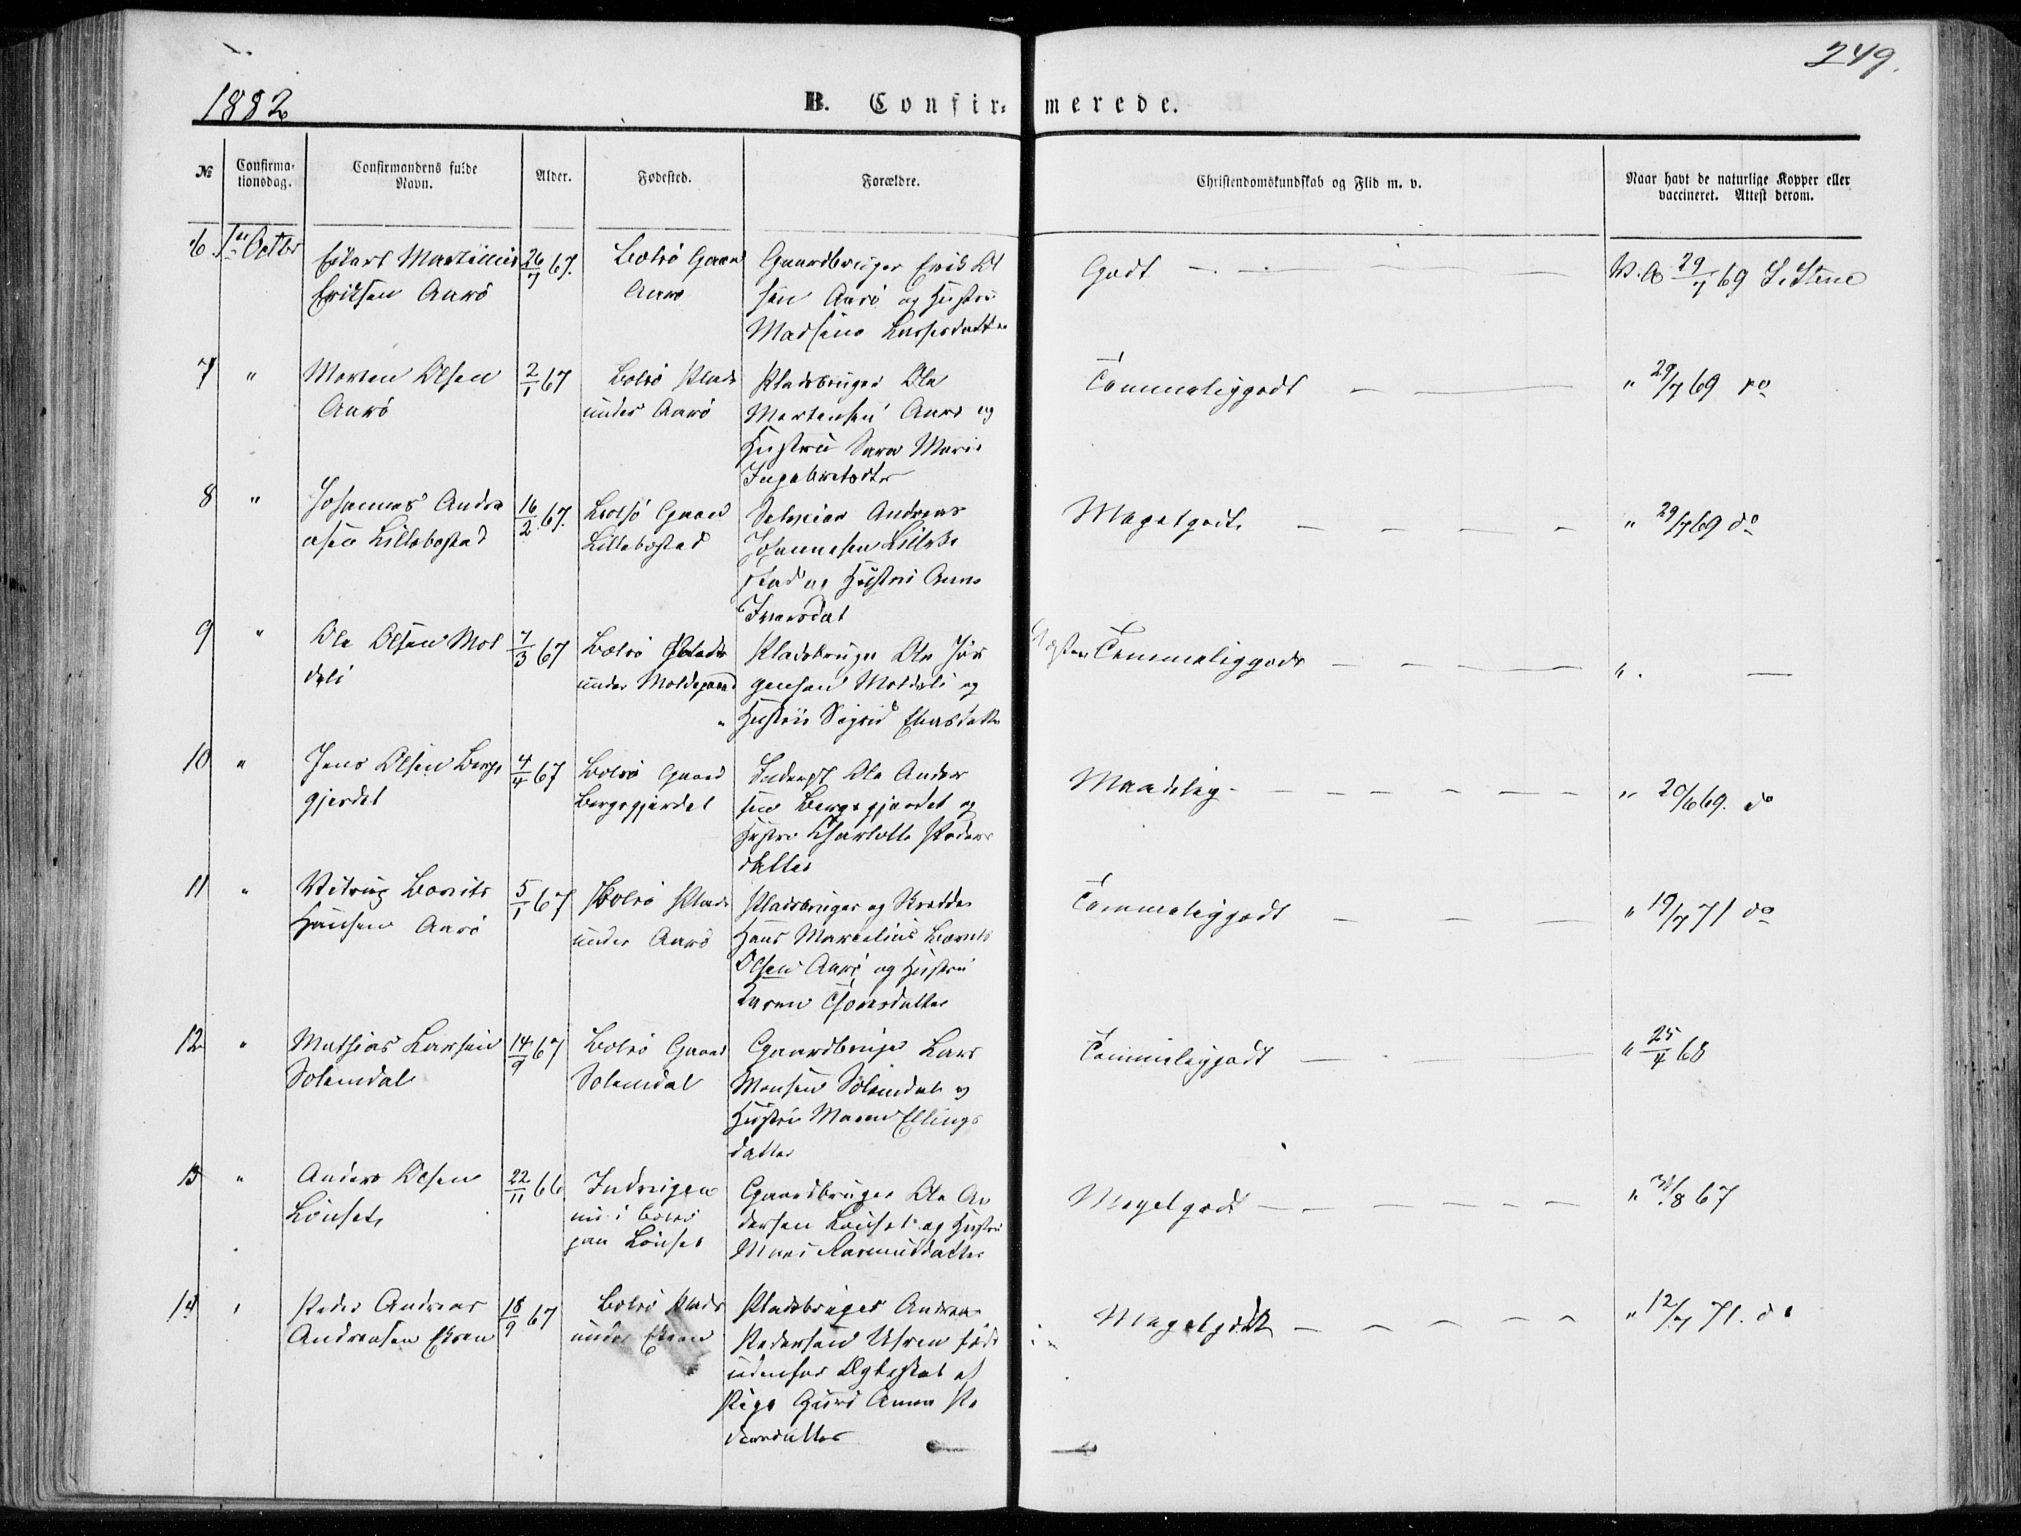 249.
1882
B. Confir- merede.
№
Confirma-
tionsdag.
Confirmandens fulde
Navn.
Alder.
Fødested.
Forældre.
Christendomskundskab og Flid m. v.
Naar havt de naturlige Kopper eller
vaccineret. Attest derom.
6. 1ste Octbr
Martinus
Eriksen Aarø
26/7 67.
Bolsø Gaard
Aarø
Gaardbruger Erik Ol
sen Aarø og Hustru
Madsine Lassesdatter
Godt
29/7 69
7 "
Morten Olsen
Aarø
2/1 67
Bolsø Plads
under Aarø
Pladsbruger Ole
Mortensen Aarø og
Hustru Sara Marie
Ingebretsdtr
Temmeliggodt
" 29/7 69 do
8 "
Johannes Andre
asen Lillebostad
16/2 67.
Bolsø Gaard
Lillebostad
Andreas
Johannesen Lillebo
stad og Hustru Anne
Iversdat
Megetgodt
" 29/7 69 do
9 "
Ole Olsen Mol
deli
7/3 67
Bolsø Plads
under Moldegaard
Pladsbruger Ole Jør
gensen Moldeli og
Hustru Sigrid
Næsten Temmeliggodt
" —
10 "
Jens Olsen Bergs
gjerdet
4/4 67
Bolsø Gaard
Bergsgjerdet
Inderst Ole Ander
sen Bergsgjerdet og
Hustru Charlotte Peders
datter
Maadelig
" 20/6 69. do
11 "
Bernts
Hansen Aarø
5/1 67
Bolsø Plads
under Aarø
Pladsbruger og Skrædder
Hans Marcelius Bernts
Olsen Aarø og Hustru
Karen Thomsdatter
Temmeliggodt
" 19/7 71 do
12 "
Mathias Larsen
Solemdal
14/9 67
Bolsø Gaard
Solemdal
Gaardbruger Lars
Monsen Solemdal og
Hustru Maren Ellings
datter
Temmeliggodt
" 25/4 68
13 "
Anders Olsen
Lønset
22/11 66
nu i Bolsø
Lønset
Gaardbruger Ole An
dersen Lønset og Hustru
Mari Rasmusdatter
Megetgodt
8 67
14 "
Peder Andreas
Andreasen Ekren
18/9 67
Bolsø Plads
under Ekren
Pladsbruger Andreas
Pedersen født
udenfor Ægteskab af
Pige Guri Anna Pe
dersdatter
Megetgodt
" 12/7 71. do